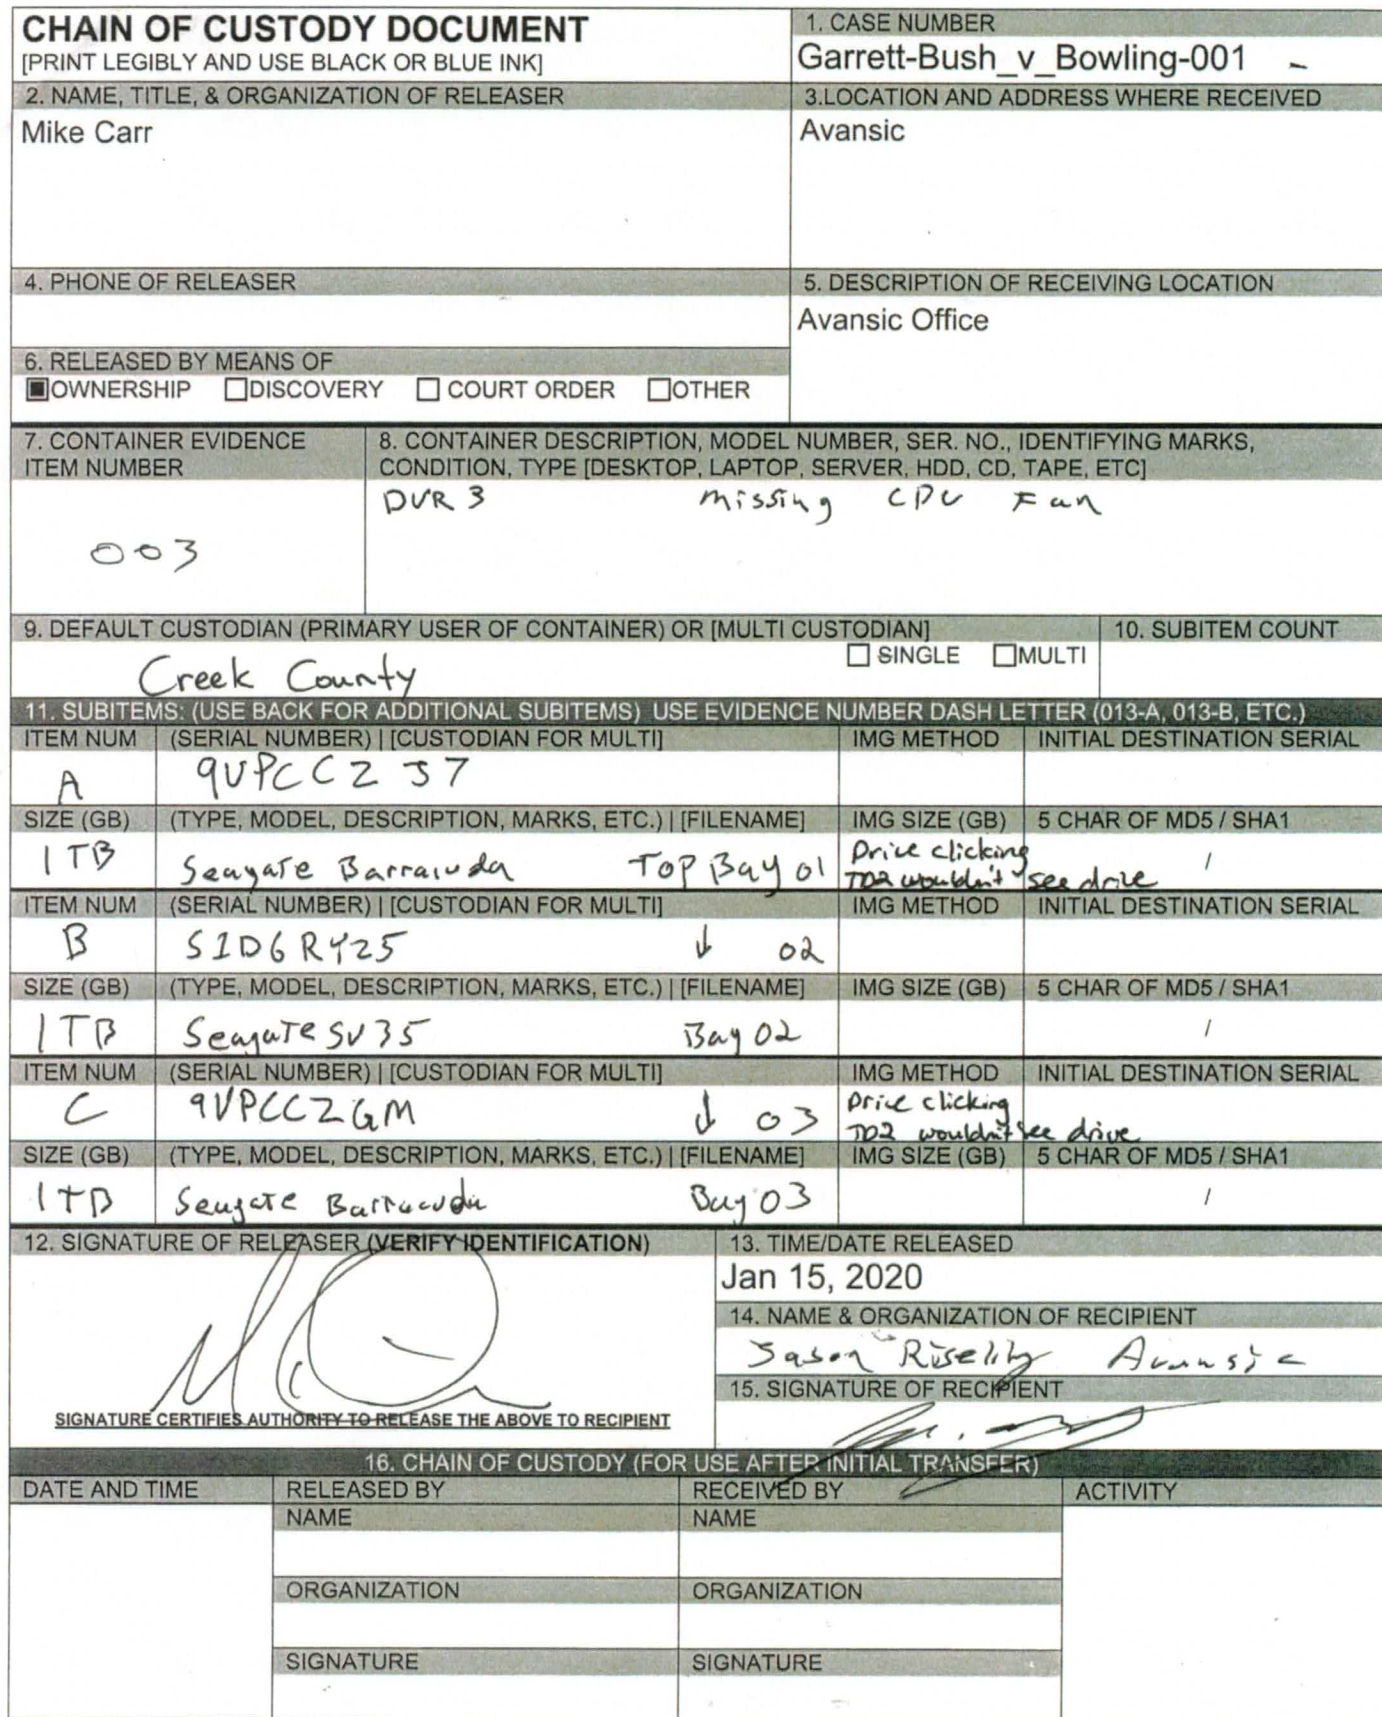 CHAIN OF CUSTODY DOCUMENT
[PRINT LEGIBLY AND USE BLACK OR BLUE INK]
1. CASE NUMBER
Garrett-Bush_v_Bowling-001
2. NAME, TITLE, & ORGANIZATION OF RELEASER
Mike Carr
3.LOCATION AND ADDRESS WHERE RECEIVED
Avansic
4. PHONE OF RELEASER
5. DESCRIPTION OF RECEIVING LOCATION
Avansic Office
6. RELEASED BY MEANS OF
OWNERSHIP DISCOVERY COURT ORDER OTHER
7. CONTAINER EVIDENCE ITEM NUMBER
003
8. CONTAINER DESCRIPTION, MODEL NUMBER, SER. NO., IDENTIFYING MARKS,
CONDITION, TYPE [DESKTOP, LAPTOP, SERVER, HDD, CD, TAPE, ETC]
DVR 3 missing CPU Fan
9. DEFAULT CUSTODIAN (PRIMARY USER OF CONTAINER) OR [MULTI CUSTODIAN]
SINGLE MULTI
Creek County
10. SUBITEM COUNT
11. SUBITEMS: (USE BACK FOR ADDITIONAL SUBITEMS) USE EVIDENCE NUMBER DASH LETTER (013-A, 013-B, ETC.)
ITEM NUM (SERIAL NUMBER) | [CUSTODIAN FOR MULTI] IMG METHOD INITIAL DESTINATION SERIAL
A 9VPCCZJ7
SIZE (GB) (TYPE, MODEL, DESCRIPTION, MARKS, ETC.) | [FILENAME] IMG SIZE (GB) 5 CHAR OF MD5 / SHA1
1TB Seagate Barracuda Top Bay 01 Drive clicking /
TD2 wouldn't see drive
ITEM NUM (SERIAL NUMBER) | [CUSTODIAN FOR MULTI] IMG METHOD INITIAL DESTINATION SERIAL
B S1D6RY25 ↓ 02
SIZE (GB) (TYPE, MODEL, DESCRIPTION, MARKS, ETC.) | [FILENAME] IMG SIZE (GB) 5 CHAR OF MD5 / SHA1
1TB Seagate SV35 Bay 02 /
ITEM NUM (SERIAL NUMBER) | [CUSTODIAN FOR MULTI] IMG METHOD INITIAL DESTINATION SERIAL
C 9VPCCZGM ↓ 03 Drive clicking
TD2 wouldn't see drive
SIZE (GB) (TYPE, MODEL, DESCRIPTION, MARKS, ETC.) | [FILENAME] IMG SIZE (GB) 5 CHAR OF MD5 / SHA1
1TB Seagate Barracuda Bay 03 /
12. SIGNATURE OF RELEASER (VERIFY IDENTIFICATION)
SIGNATURE CERTIFIES AUTHORITY TO RELEASE THE ABOVE TO RECIPIENT
13. TIME/DATE RELEASED
Jan 15, 2020
14. NAME & ORGANIZATION OF RECIPIENT
Jason Avansic
15. SIGNATURE OF RECIPIENT
16. CHAIN OF CUSTODY (FOR USE AFTER INITIAL TRANSFER)
DATE AND TIME RELEASED BY RECEIVED BY ACTIVITY
NAME NAME
ORGANIZATION ORGANIZATION
SIGNATURE SIGNATURE